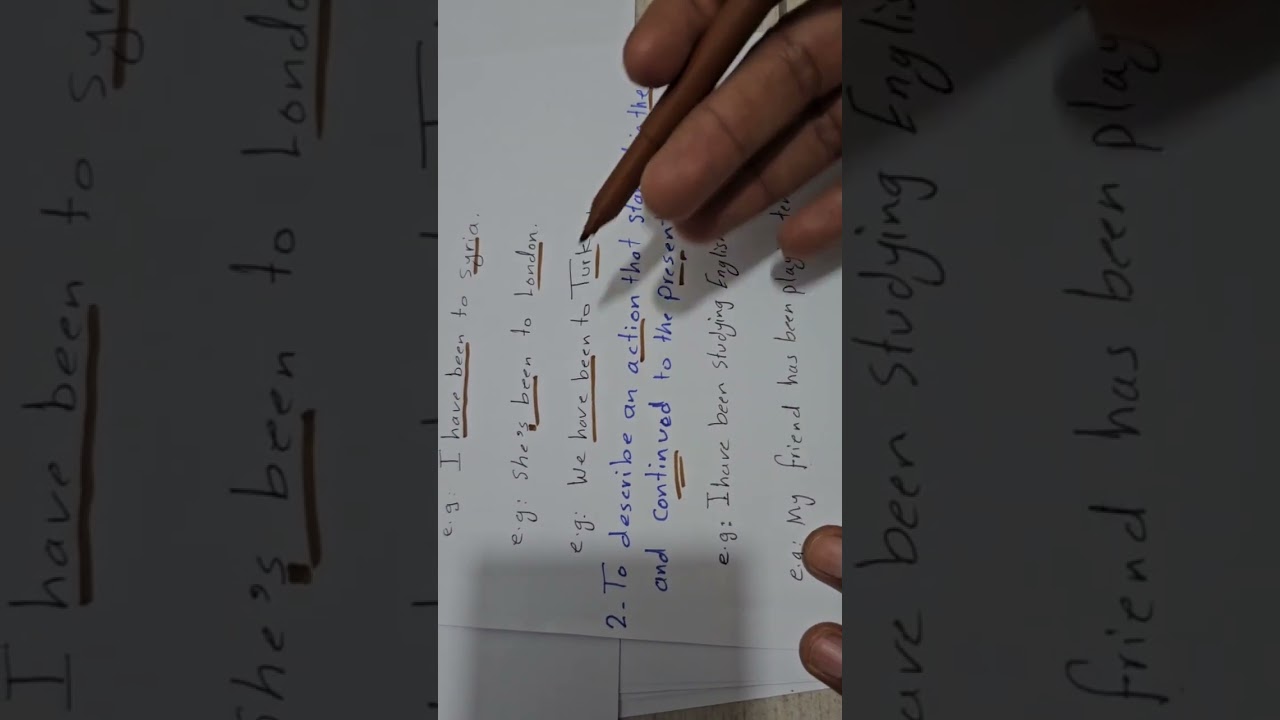 e.g: I have been to Syria.
e.g: She's been to London.
e.g: We have been to Turk
2-To describe an action that sta the
and continued to the Presen
e.g: I have been studying Englis
e.g: My friend has been play ten